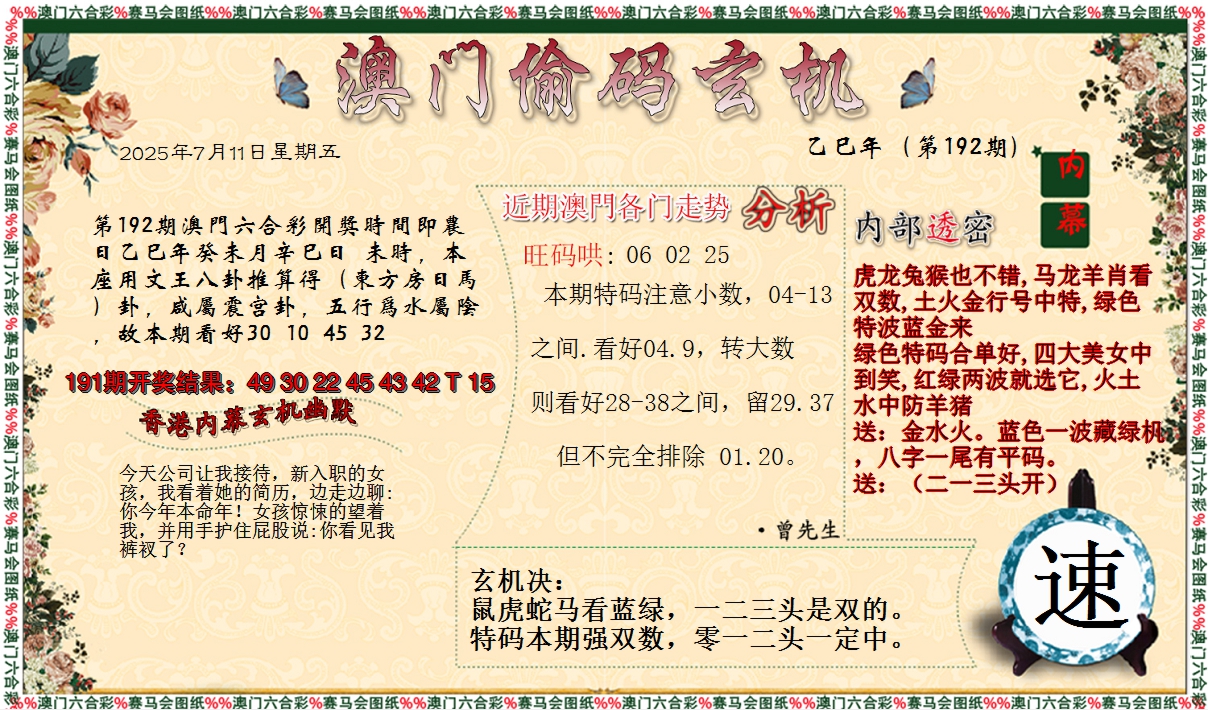 %%澳门六合彩%赛马会图纸%%澳门六合彩%赛马会图纸%%澳门六合彩%赛马会图纸%%澳门六合彩%赛马会图纸%%澳门六合彩%赛马会图纸%%澳门六合彩%赛马会图纸%%
澳门偷码玄机
2025年7月11日星期五
乙巳年（第192期）
第192期澳門六合彩開獎時間即農
日乙巳年癸未月辛巳日 未時，本
座用文王八卦推算得（東方房日馬
）卦，咸屬震宫卦，五行爲水屬陰
，故本期看好30 10 45 32
191期开奖结果：49 30 22 45 43 42 T 15
香港内幕玄机幽默
今天公司让我接待，新入职的女
孩，我看着她的简历，边走边聊:
你今年本命年！女孩惊悚的望着
我，并用手护住屁股说:你看见我
裤衩了？
近期澳門各门走势 分析
旺码哄: 06 02 25
本期特码注意小数，04-13
之间.看好04.9，转大数
则看好28-38之间，留29.37
但不完全排除 01.20。
·曾先生
内幕
内部透密
虎龙兔猴也不错,马龙羊肖看
双数,土火金行号中特,绿色
特波蓝金来
绿色特码合单好,四大美女中
到笑,红绿两波就选它,火土
水中防羊猪
送：金水火。蓝色一波藏绿机
，八字一尾有平码。
送：（二一三头开）
玄机决：
鼠虎蛇马看蓝绿，一二三头是双的。
特码本期强双数，零一二头一定中。
速
%%澳门六合彩%赛马会图纸%%澳门六合彩%赛马会图纸%%澳门六合彩%赛马会图纸%%澳门六合彩%赛马会图纸%%澳门六合彩%赛马会图纸%%澳门六合彩%赛马会图纸%%